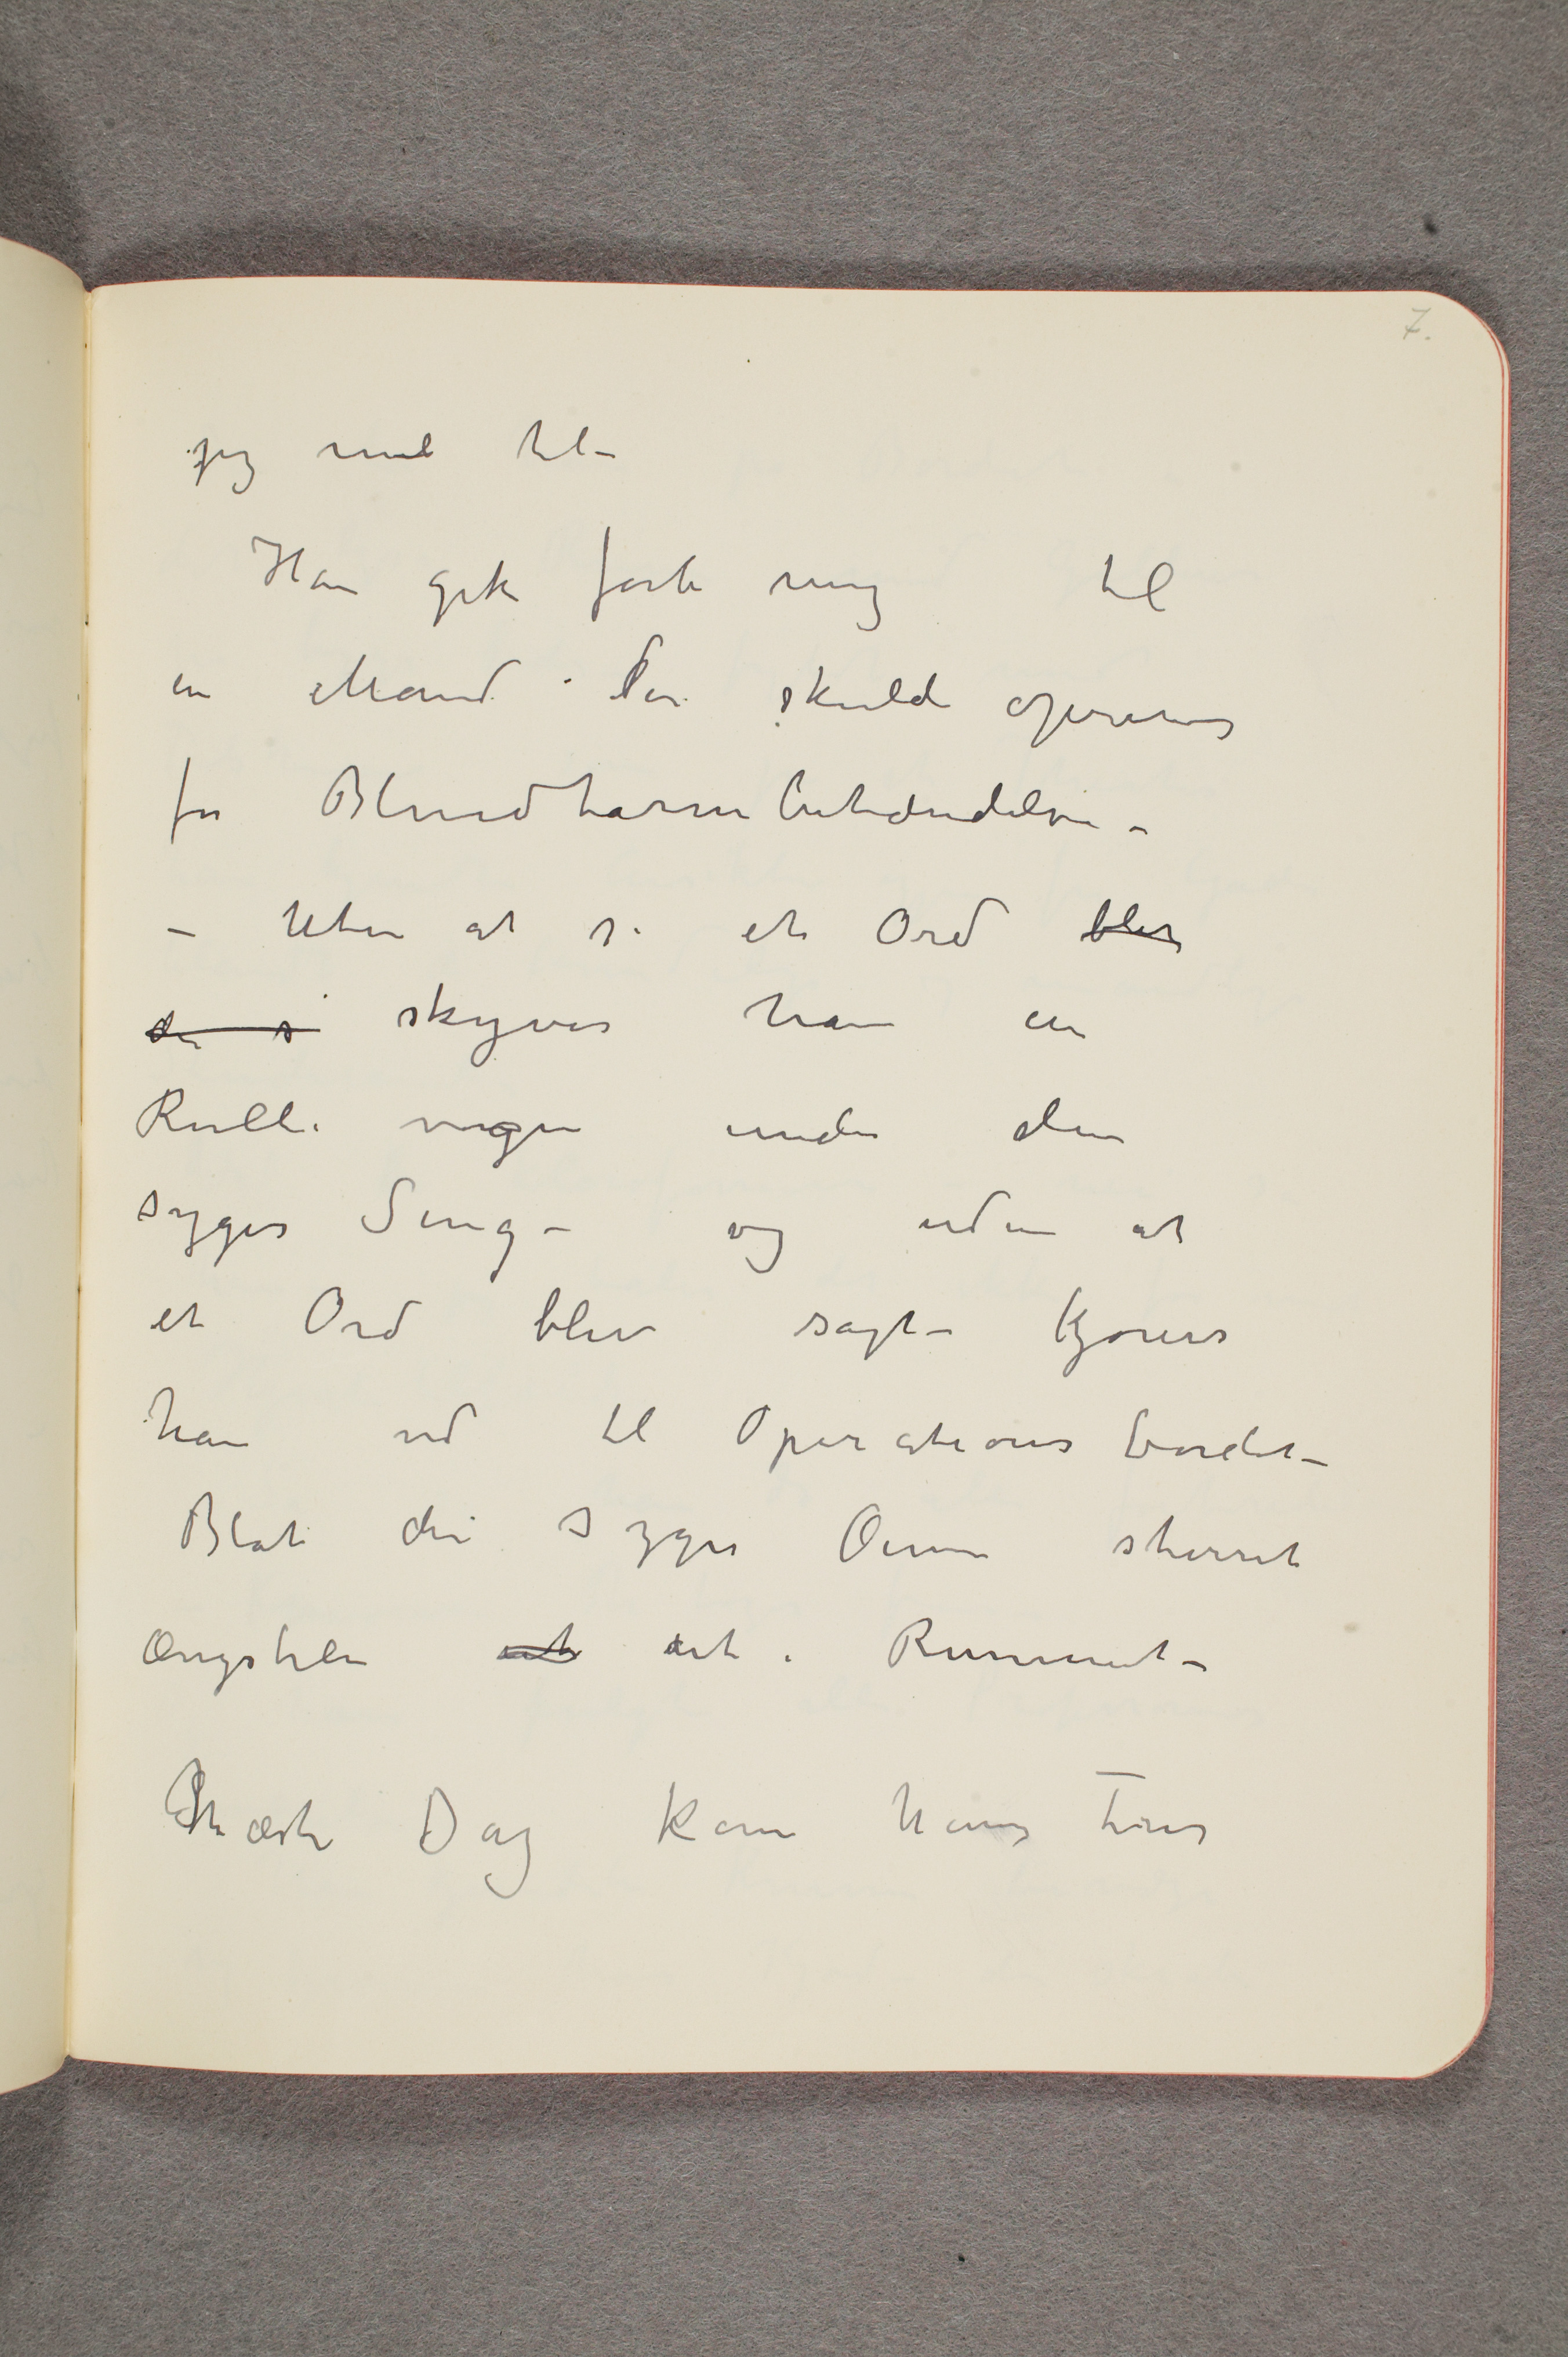 7.
jeg med til –
Han gik forbi mig til
en Mand der skulde opereres
for Blindtarmbetændelse –
– Uten at si et Ord blev
de s skyver han en
Rulle vogn under den
syges Seng – og uden at
et Ord blev sagt – kjøres
han ud til Operations bordet –
Blot den syges Øine stirret
ængstelig ut ut i Rummet –
Næste Dag kom hans